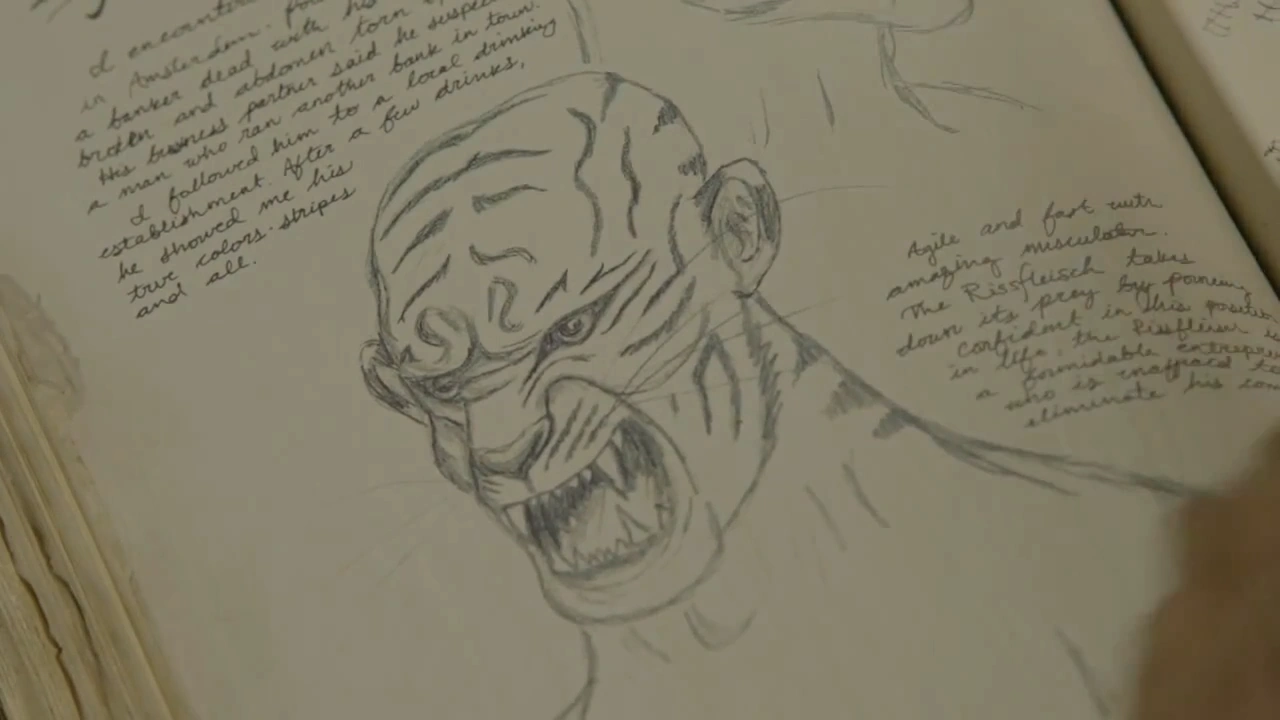 I encountered
in Amsterdam.
a banker dead with his
broken and abdomen torn
His business partner said he suspected
man who ran another bank in town.
I followed him to a local drinking
establishment. After a few drinks,
he showed me his
true colors. stripes
and all.
Agile and fast with
amazing musculator.
The Rissfleisch takes
down its prey by pouncing
Confident in this position
in life, the Rissfleisch is
a formidable
who is unafraid to
eliminate his